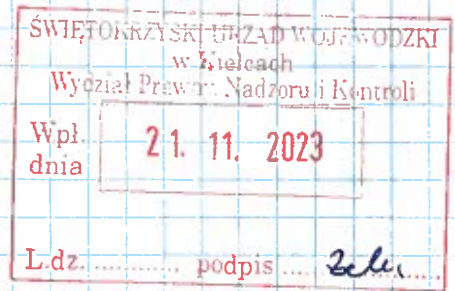 ŚWIĘTOKRZYSKI URZĄD WOJEWÓDZKI
w Kielcach
Wydział Prawny, Nadzoru i Kontroli
Wpł. 21. 11. 2023
dnia
L.dz. ............ podpis ....